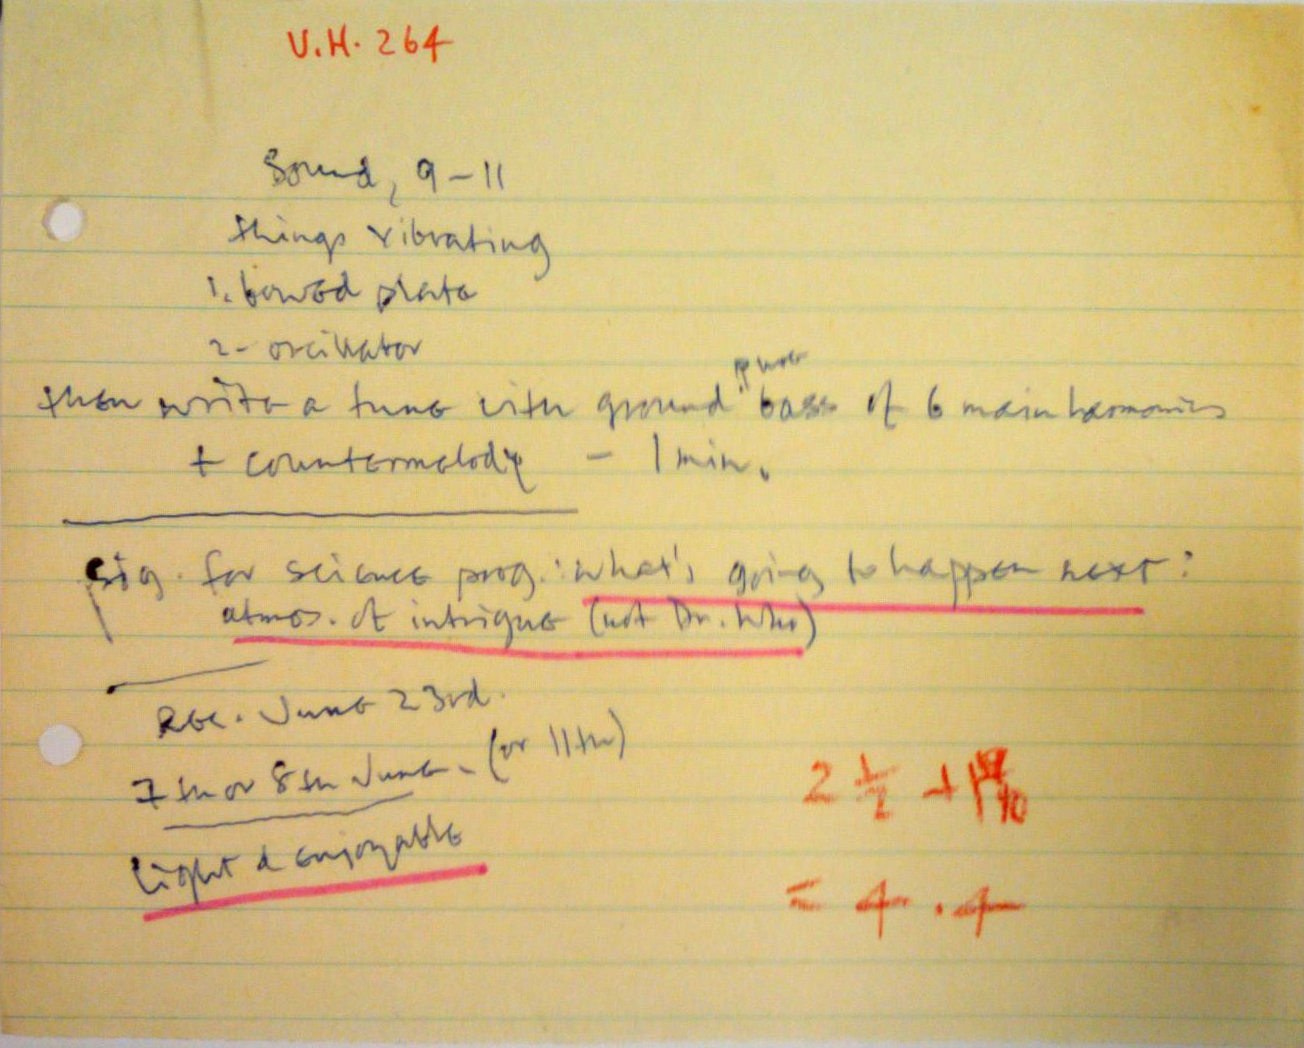 V.H. 264
Sound, 9-11
things vibrating
1. bowed plate
2 - oscillator
then write a tune with ground "bass of 6 main harmonics
+ countermelody - 1 min.
Sig. for science prog.: what's going to happen next:
atmos. of intrigue (not Dr. Who)
Rec. June 23rd.
7th or 8th June. (or 11th)
light & enjoyable
2 1/2 + 1 9/10
= 4.4